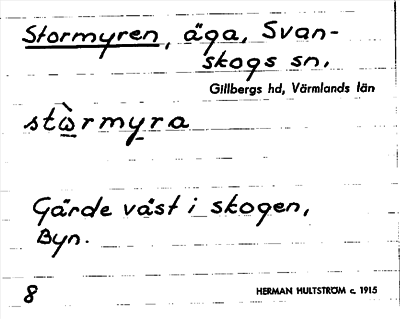 Stormyren, äga, Svan-
skogs sn.
Gillbergs hd, Värmlands län
stὼrmyra
Gärde väst i skogen,
Byn.
8 HERMAN HULTSTRÖM c. 1915